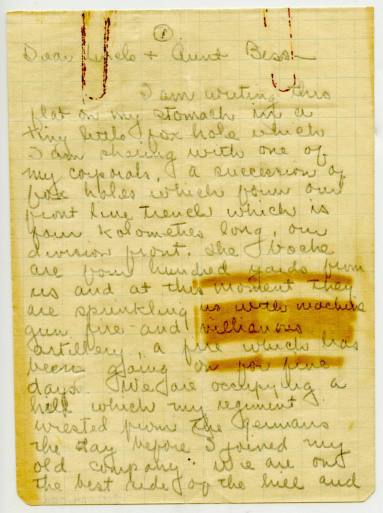 1
Dear Uncle + Aunt Bess
I am writing this
flat on my stomach in a
tiny little fox hole which
I am sharing with one of
my corporals, a succession of
fox holes which form our
front line trench which is
four kolometies long, our
division front. The Boche
are four hundred yards from
us and at this moment they
are sprinkling us with machine
gun fire and villianous
artillery, a fire which has
been going on for five
days. We are occupying a
hill which my regiment
wrested from the Germans
the day before I joined my
old company. We are on
the best side of the hill and